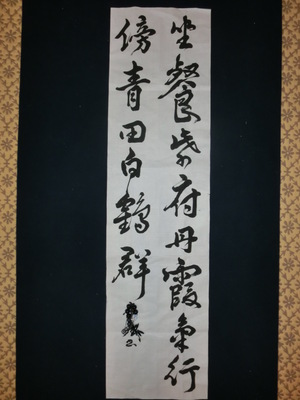 坐餐紫府丹霞氣行
傍青田白鶴群